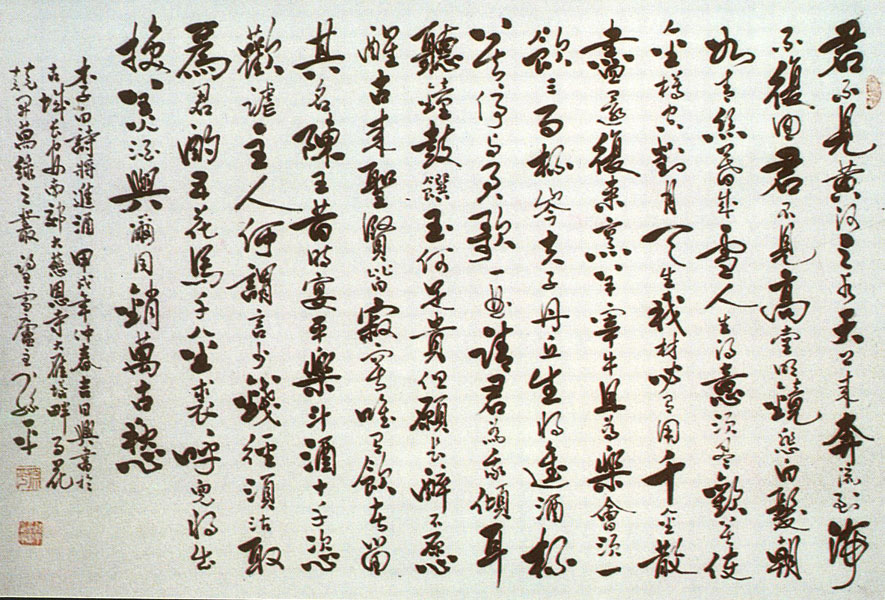 君不見黃河之水天上來奔流到海
不復回君不見高堂明鏡悲白髮朝
如青絲暮成雪人生得意須盡歡莫使
金樽空對月天生我材必有用千金散
盡還復來烹羊宰牛且為樂會須一
飲三百杯岑夫子丹丘生將進酒杯
莫停與君歌一曲請君為我傾耳
聽鐘鼓饌玉何足貴但願長醉不願
醒古來聖賢皆寂寞唯有飲者留
其名陳王昔時宴平樂斗酒十千恣
歡謔主人何謂言少錢徑須沽取
為君酌五花馬千金裘呼兒將出
換美酒與爾同銷萬古愁
李白詩將進酒 甲戌年仲春吉日興書於
古城長安南郊大慈恩寺大雁塔畔百花
競開萬綠之叢 雪廬主